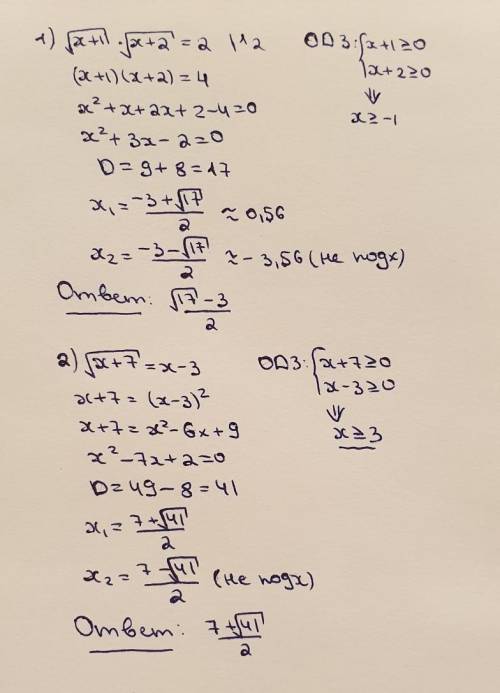 1) √x+1 · √x+2 = 2 |^2 ОДЗ: { x+1 ≥ 0
(x+1)(x+2) = 4 x+2 ≥ 0
⇓
x² + x + 2x + 2 - 4 = 0 x ≥ -1
x² + 3x - 2 = 0
D = 9 + 8 = 17
x₁ = (-3 + √17)/2 ≈ 0,56
x₂ = (-3 - √17)/2 ≈ - 3,56 (не подх)
Ответ: (√17 - 3)/2
2) √x+7 = x - 3 ОДЗ: { x+7 ≥ 0
x+7 = (x-3)² x-3 ≥ 0
⇓
x+7 = x² - 6x + 9 x ≥ 3
x² - 7x + 2 = 0
D = 49 - 8 = 41
x₁ = (7 + √41)/2
x₂ = (7 - √41)/2 (не подх)
Ответ: (7 + √41)/2